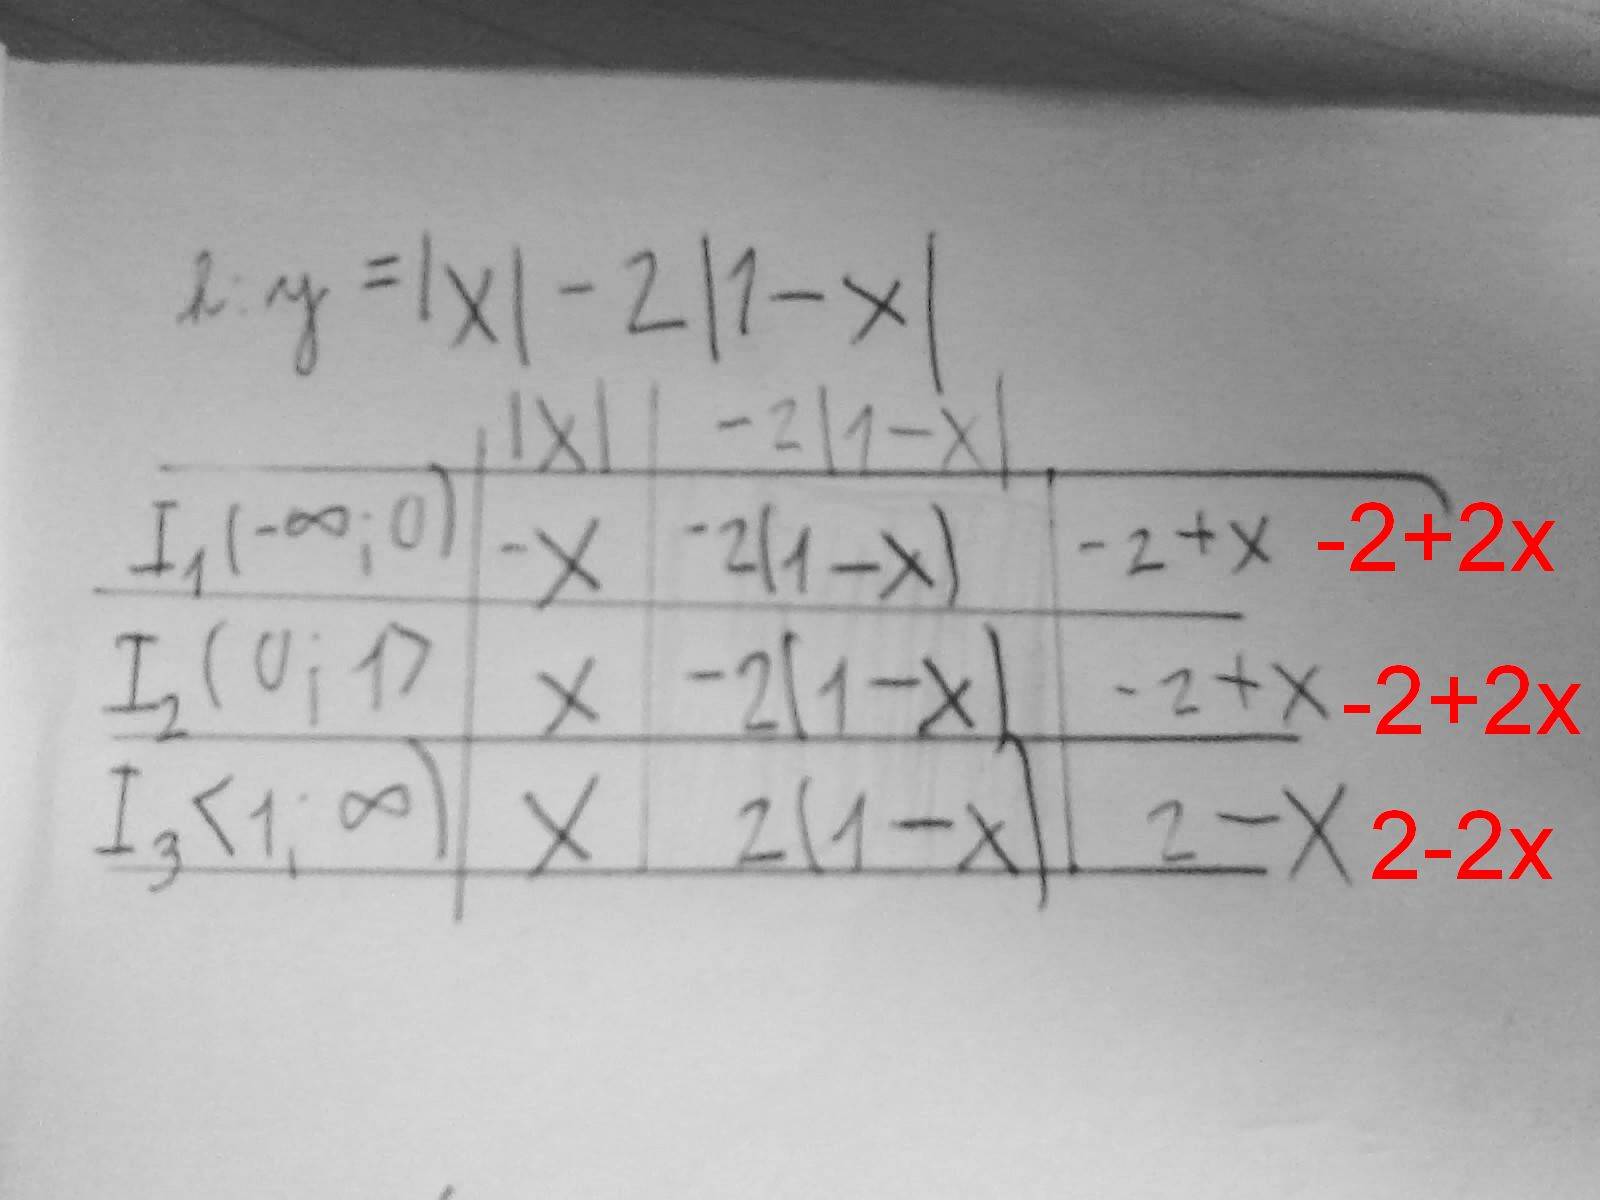 h: y = |x| - 2|1-x|
|x| -2|1-x|
I₁ (-∞; 0) -x -2(1-x) -2+x -2+2x
I₂ (0; 1> x -2(1-x) -2+x -2+2x
I₃ <1; ∞) x 2(1-x) 2-x 2-2x